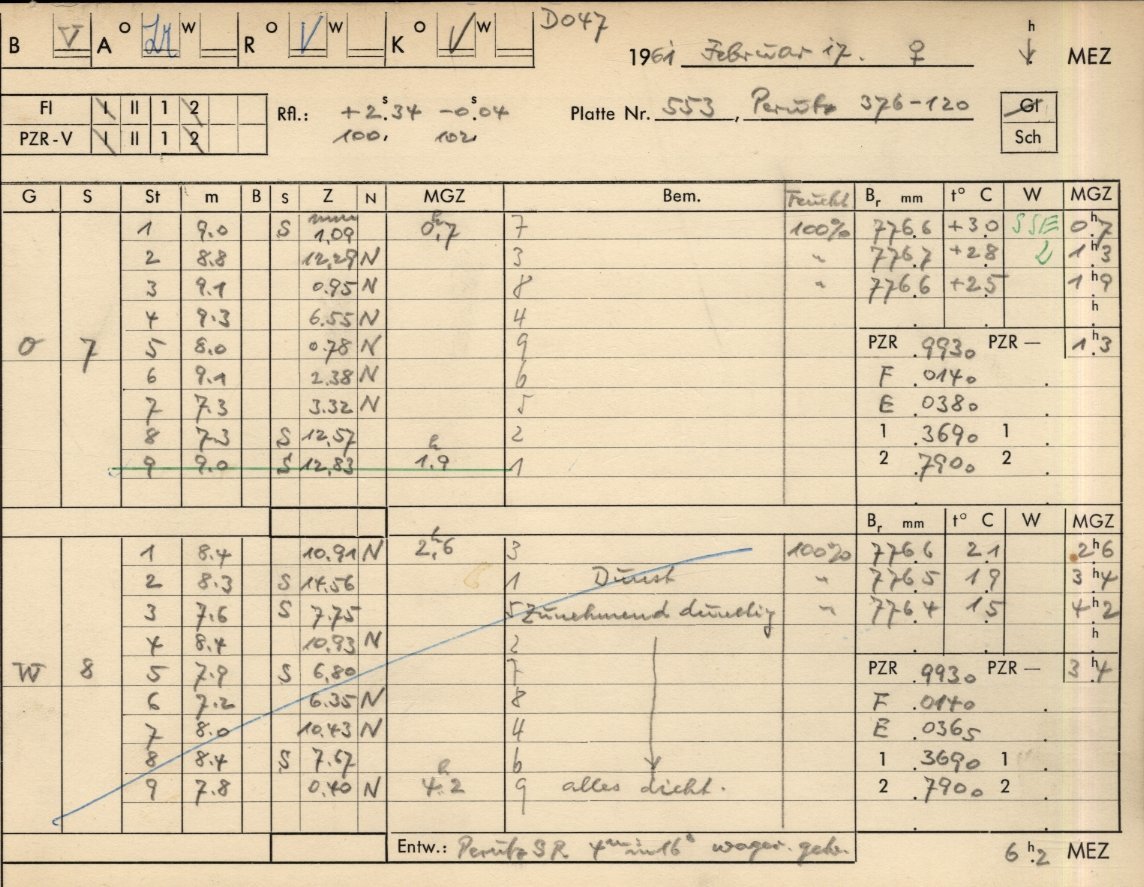 B V A o W R o V W K o V W D047
1961 Februar 17. ♀ h MEZ
FI I II 1 2
PZR-V I II 1 2
Rfl.: +2ˢ.34 -0ˢ.04
100. 102.
Platte Nr. 553, Perutz 376-120
Gl
Sch
G S St m B S Z N MGZ Bem. Feucht Bᵣ mm t° C W MGZ
O 7
1 9.0 S mm 1,09 0ʰ,7 7 100% 776.6 +3.0 SSE 0ʰ.7
2 8.8 12,29 N 3 " 776.7 +2.8 2 1ʰ.3
3 9.1 0.95 N 8 " 776.6 +2.5 1ʰ.9
4 9.3 6.55 N 4 h
5 8.0 0.78 N 9 PZR .9930 PZR — 1ʰ.3
6 9.1 2.38 N 6 F .0140 .
7 7.3 3.32 N 5 E .0380 .
8 7.3 S 12,57 2 1 .3690 1 .
9 9.0 S 12,83 1ʰ.9 1 2 .7900 2 .
Bᵣ mm t° C W MGZ
W 8
1 8.4 10.91 N 2ʰ,6 3 100% 776.6 2.1 2ʰ6
2 8.3 S 14.56 1 Dunst " 776.5 1.9 3ʰ4
3 7.6 S 7.75 5 Zunehmend dunstig " 776.4 1.5 4ʰ2
4 8.4 10.93 N 2 h
5 7.9 S 6,80 7 PZR .9930 PZR — 3ʰ.4
6 7.2 6.35 N 8 F .0140 .
7 8.0 10.43 N 4 E .0365 .
8 8.4 S 7.67 6 1 .3690 1 .
9 7.8 0.40 N 4ʰ.2 9 alles dicht. 2 .7900 2 .
Entw.: Perutz SR 4ᵐ in 16° wager. 6ʰ.2 MEZ